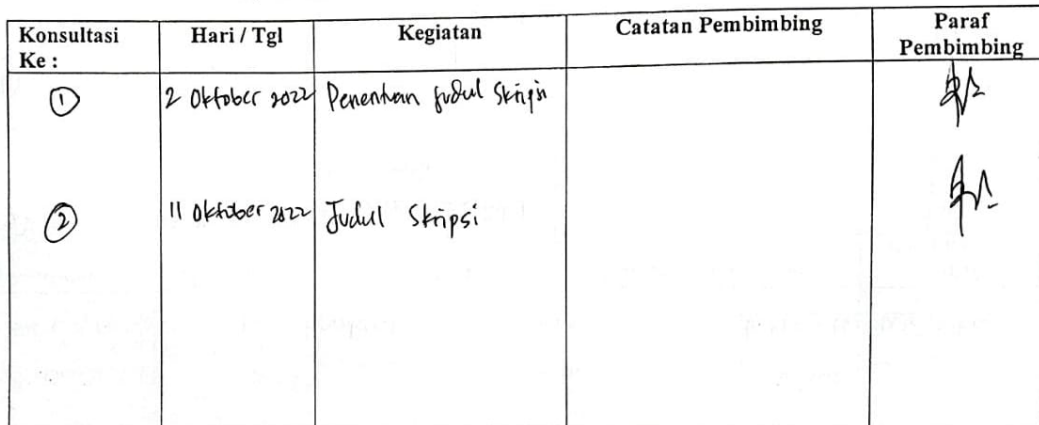 Konsultasi Ke : Hari / Tgl Kegiatan Catatan Pembimbing Paraf Pembimbing
1 2 Oktober 2022 Penentuan Judul Skripsi
2 11 Oktober 2022 Judul Skripsi